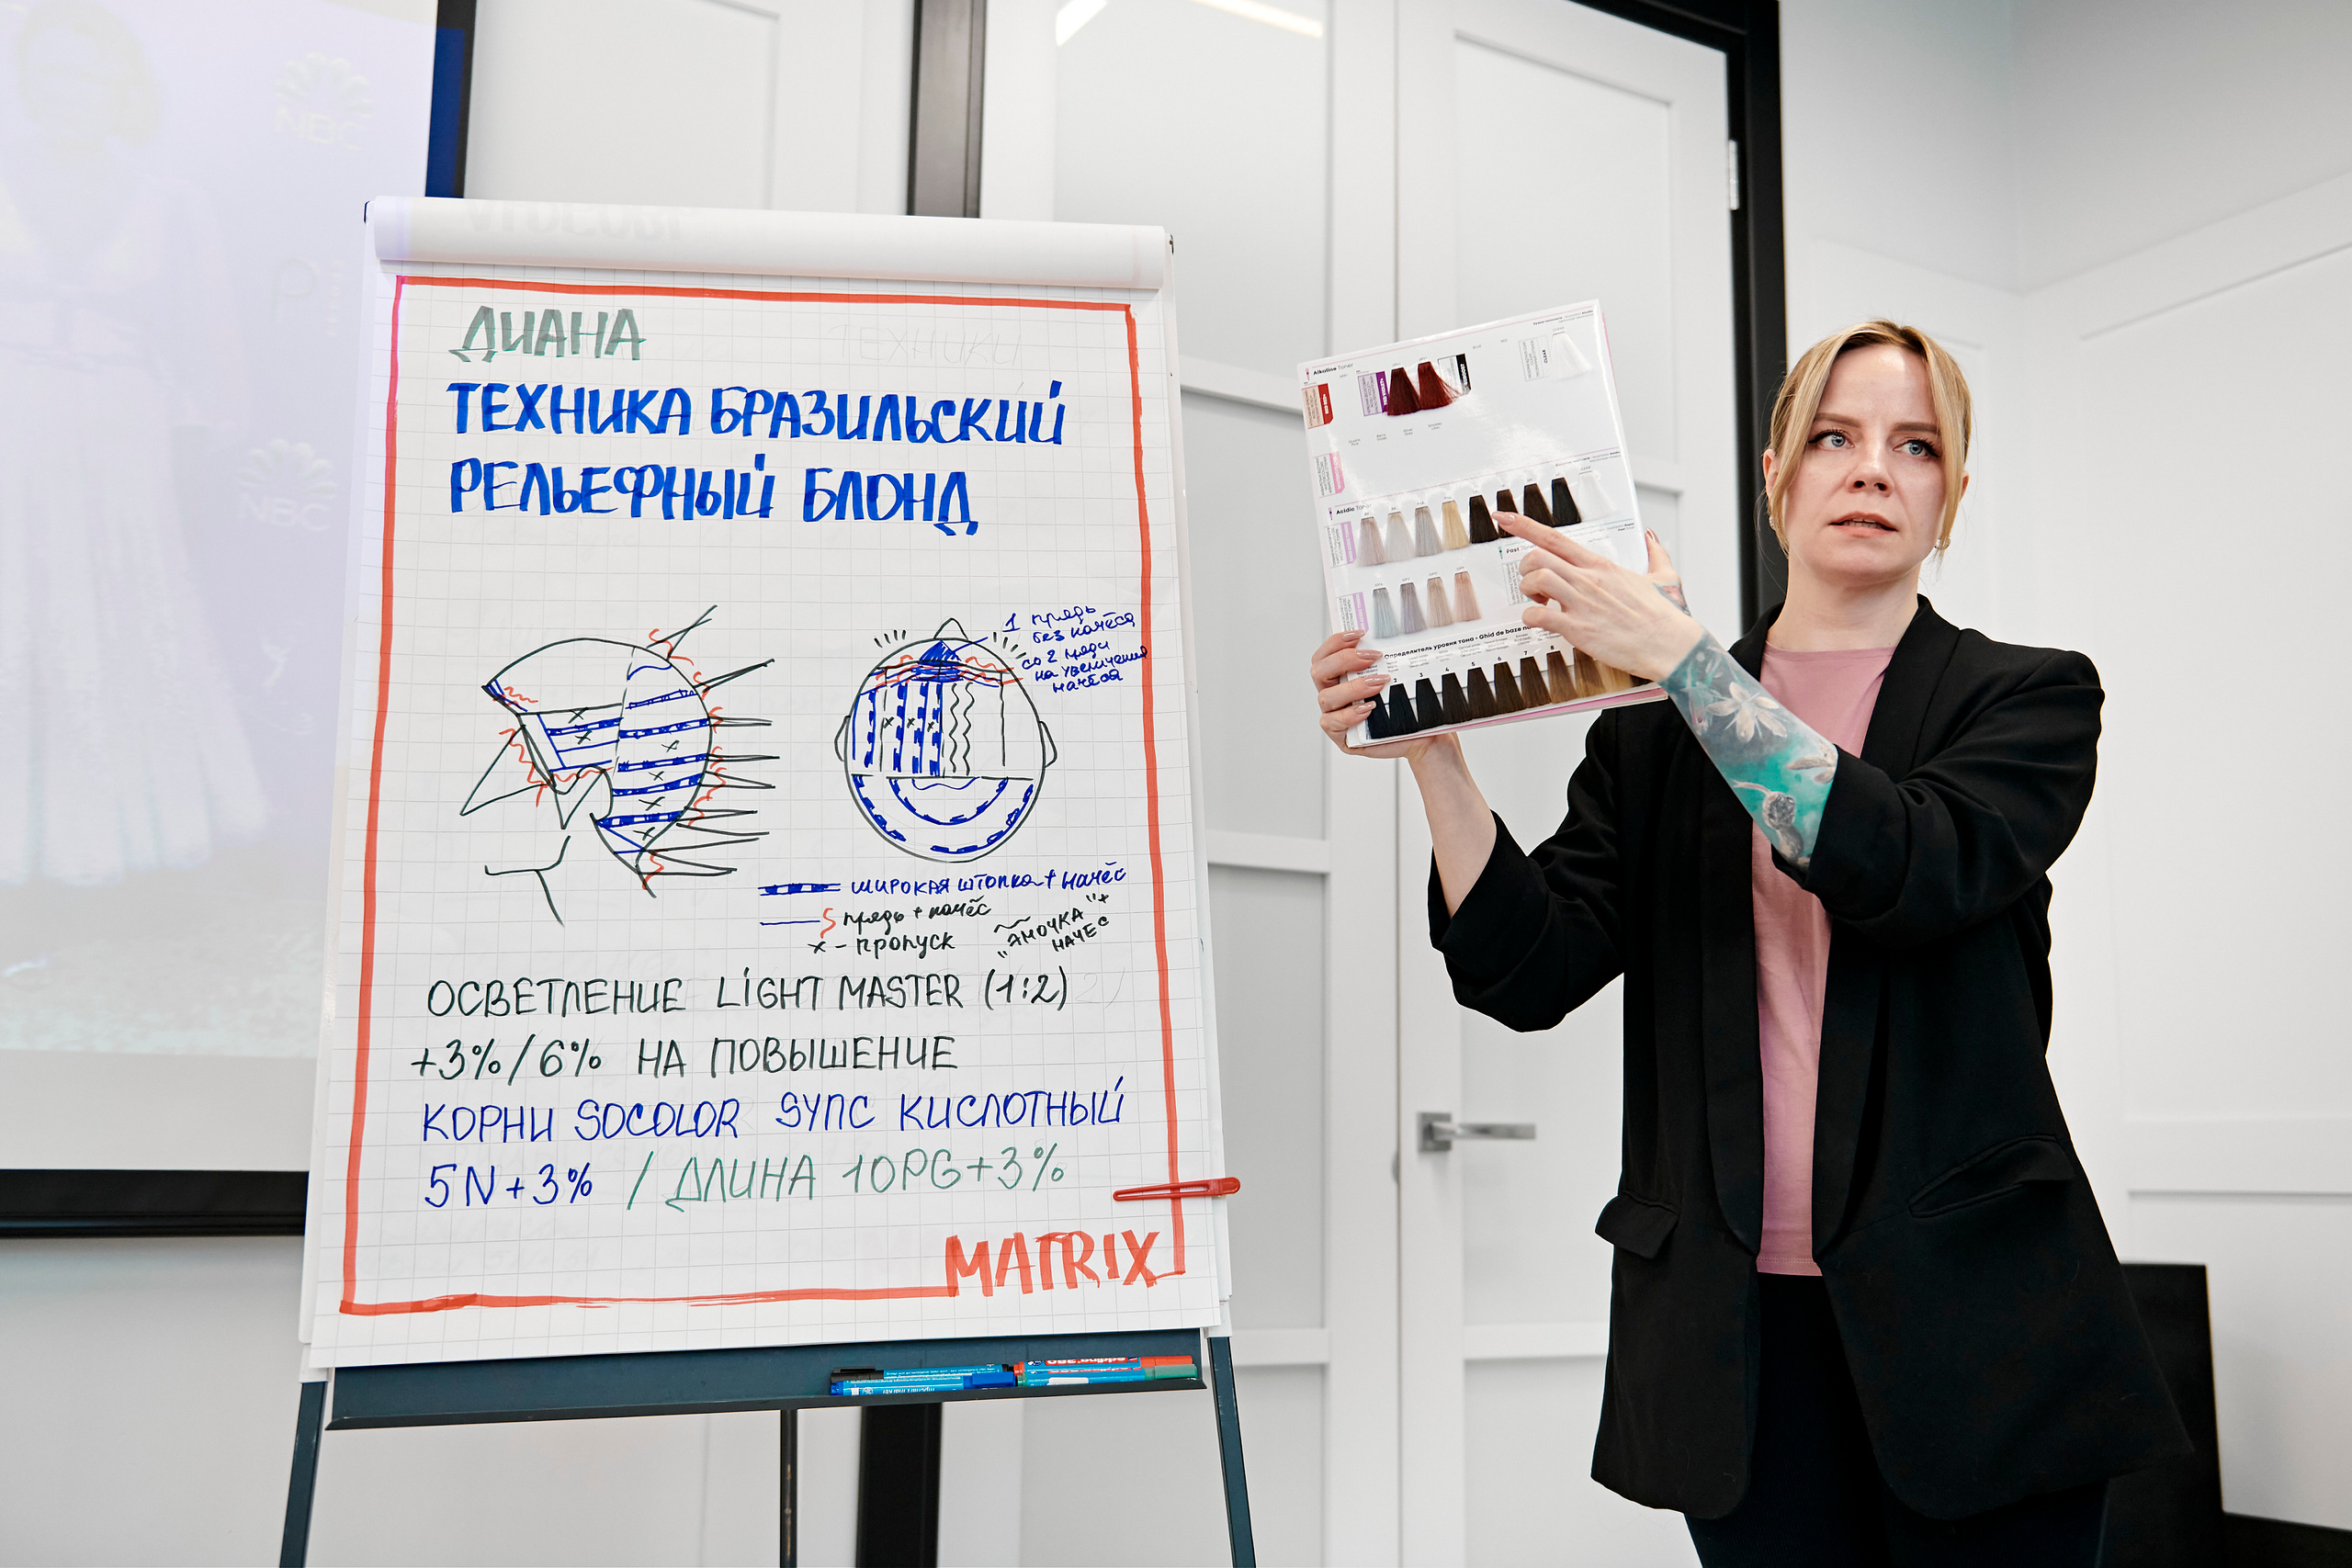 NBC
NBC
ДИАНА
ТЕХНИКИ
ТЕХНИКА БРАЗИЛЬСКИЙ
РЕЛЬЕФНЫЙ БЛОНД
1 прядь
без начёса
со 2 пряди
на увеличения
начёса
ШИРОКАЯ штопка + начёс
прядь + начёс
х - пропуск
"ЗМОЧКА" +
НАЧЕС
ОСВЕТЛЕНИЕ LIGHT MASTER (1:2)
+3%/6% НА ПОВЫШЕНИЕ
КОРНИ SOCOLOR SYNC КИСЛОТНЫЙ
5N+3% / ДЛИНА 10PG+3%
MATRIX
Alkaline Toner
CLEAR
Acidic Toner
Fast Toner
Определитель уровня тона - Ghid de baze
3 4 5 6 7 8